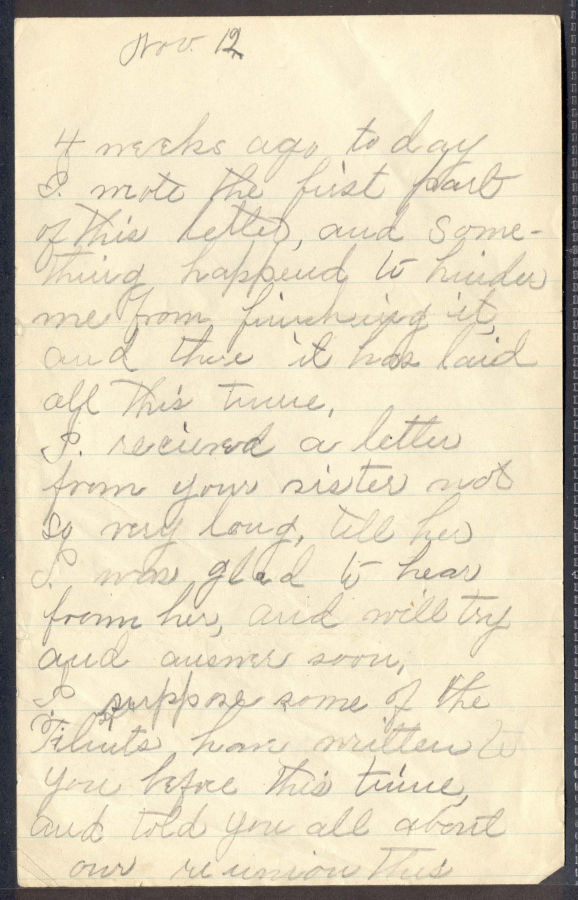 Nov. 12
4 weeks ago today
I. wrote the first part
of this letter, and some-
thing happend to hinder
me from finishing it,
and there it has laid
all this time.
I. recieved a letter
from your sister not
so very long, tell her
I. was glad to hear
from her, and will try
and answer soon,
I suppose some of the
have written to
you before this time,
and told you all about
our reunion this